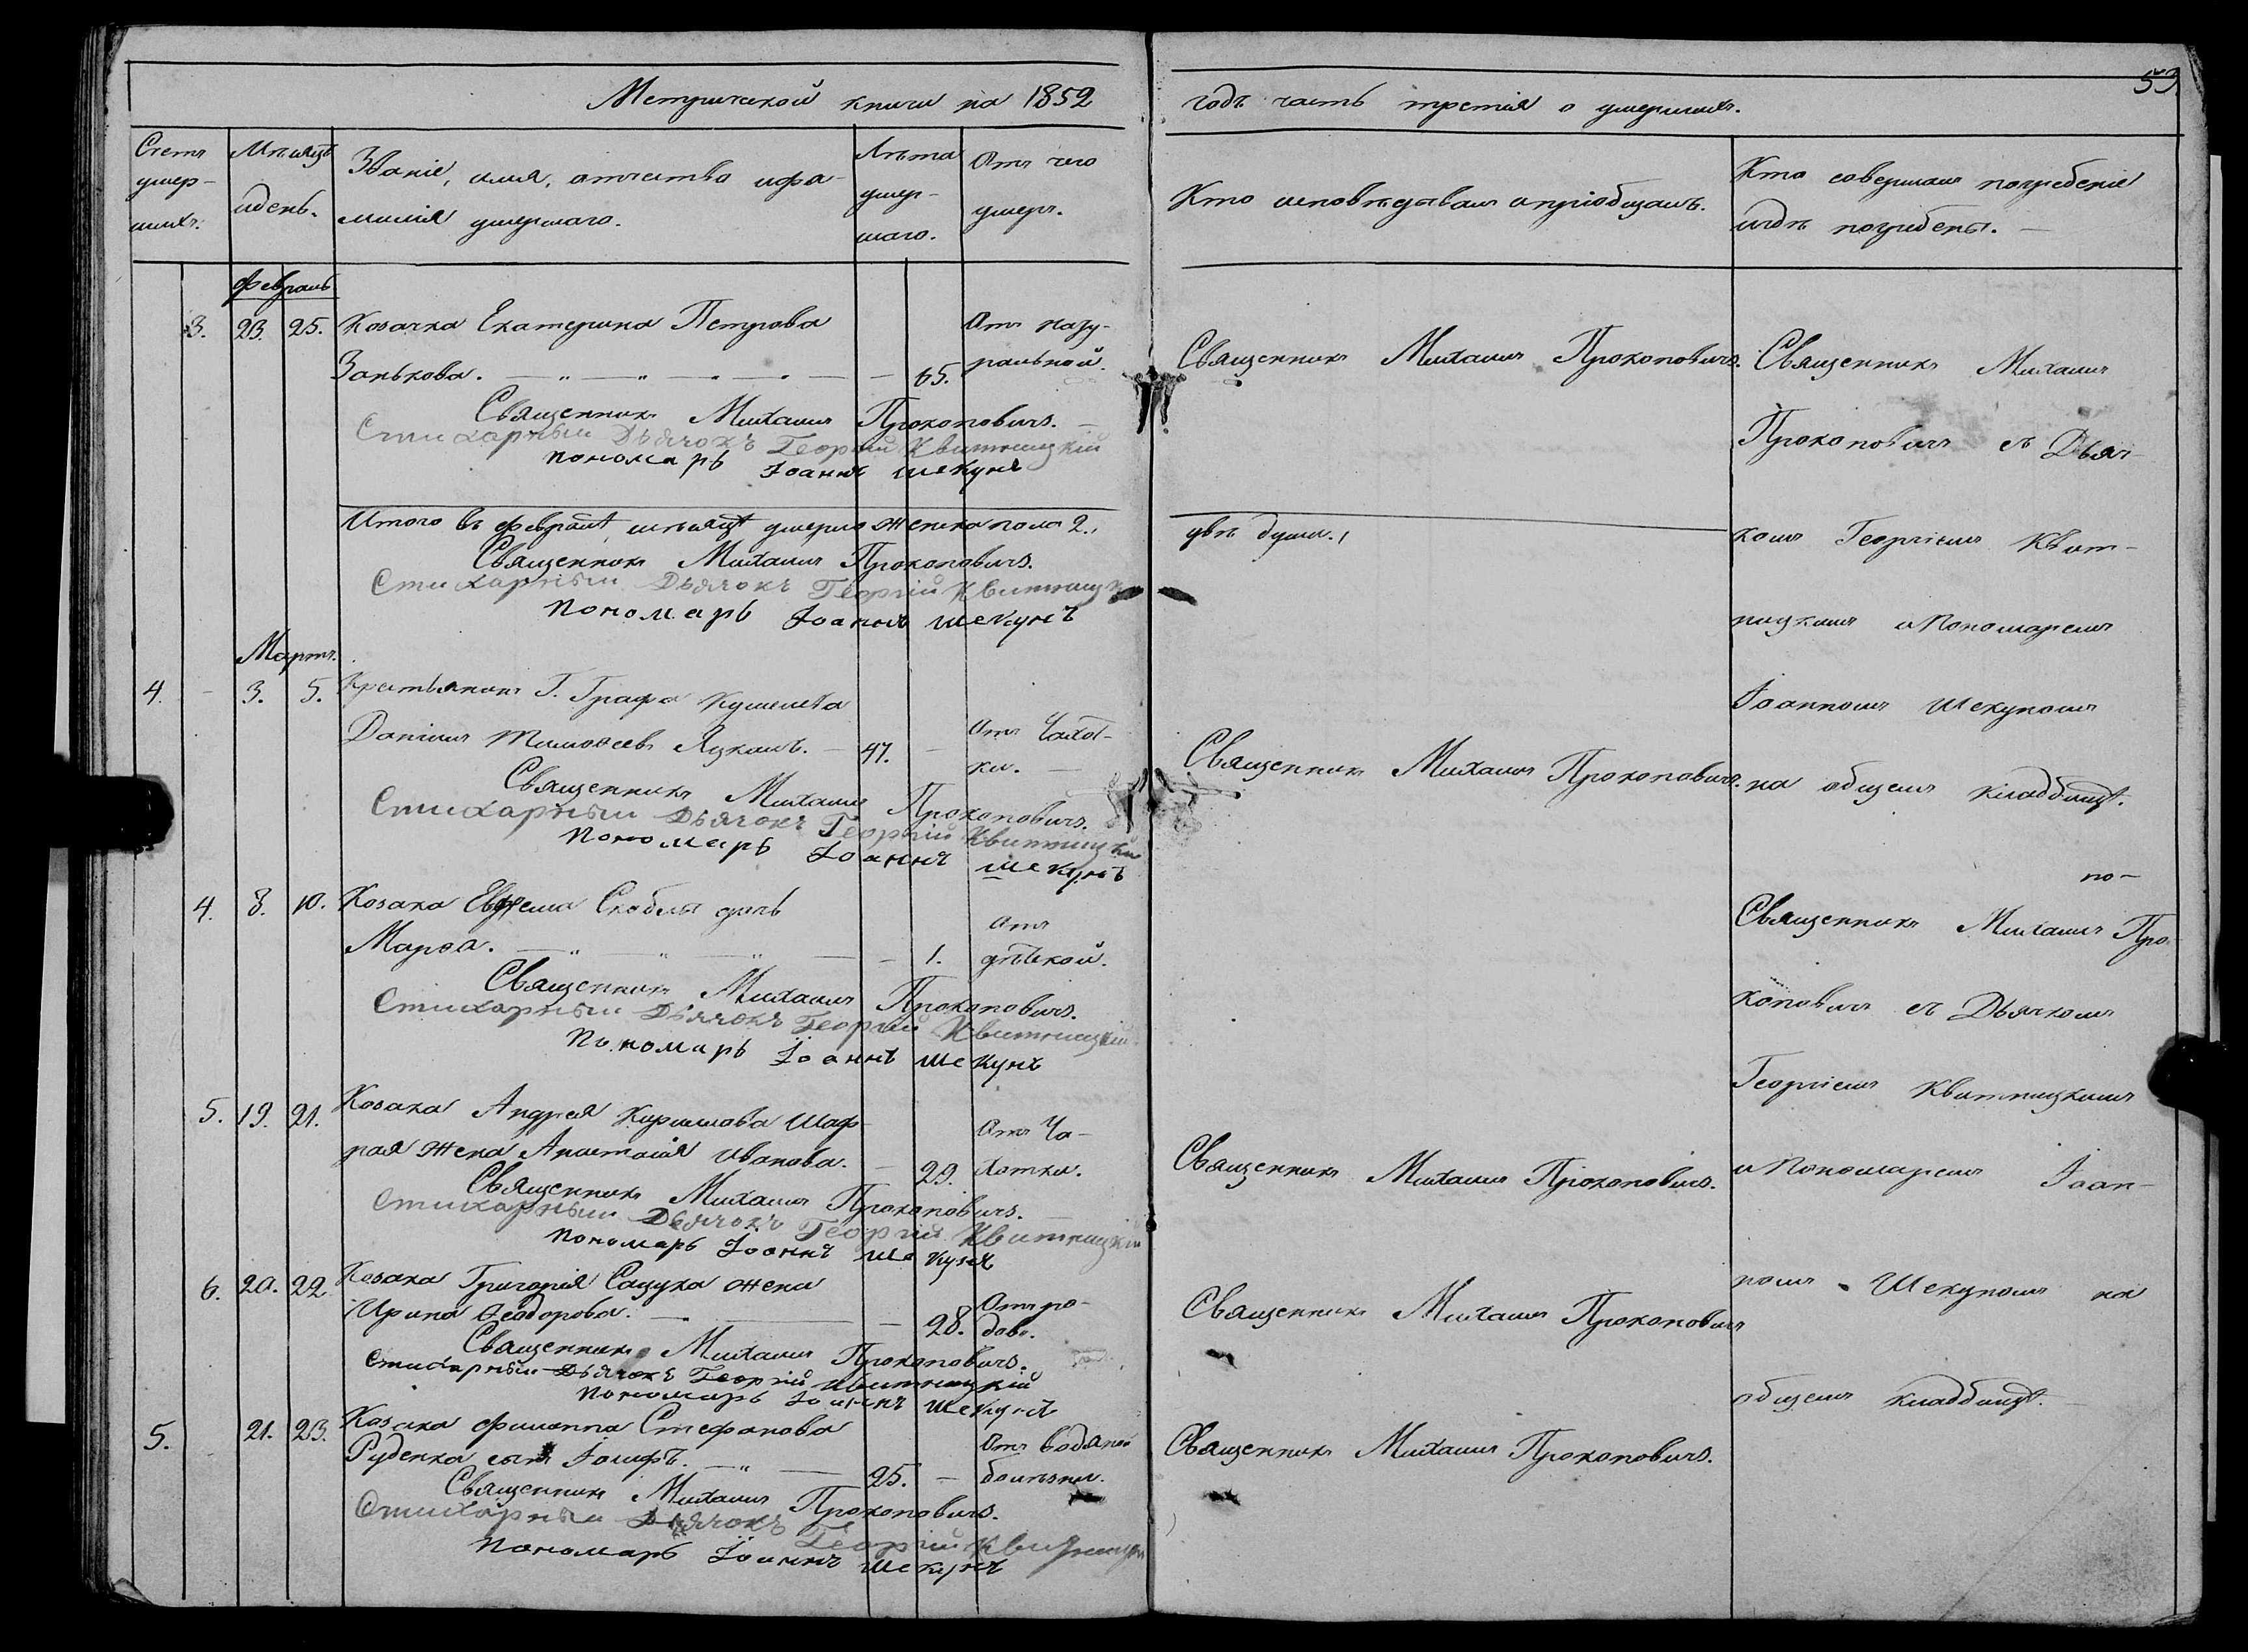 Метрической книги на 1852
годъ часть третія о умершихъ.
53.
Счетъ умер-шихъ.
Мѣсяцъ идень.
Званіе, имя, отчество ифа-
милія умершаго.
Лѣта умер-шаго.
Отъ чего умеръ.
Кто исповѣдывалъ ипріобщалъ.
Кто совершалъ погребеніе
игдѣ погребены.
Февраль
3. 23. 25. Козачка Екатерина Петрова
Занькова. 65. Отъ нату-
ральной.
Священникъ Михаилъ Прокоповичъ.
Стихарный Дьячокъ Георгій Квитницкій
пономарь Іоаннъ Шекунъ
Итого въ Февралѣ мѣсяцѣ умерло женска пола 2.,
двѣ души.,
Священникъ Михаилъ Прокоповичъ.
Стихарный Дьячокъ Георгій Квитницк
пономарь Іоаннъ Шекунъ
Мартъ.
4. - 3. 5. Крестьянинъ Г. Графа Кушелева
Даніилъ Тимоѳеевъ Яцканъ. 47. - Отъ Чахот-
ки.
Священникъ Михаилъ Прокоповичъ.
Стихарный Дьячокъ Георгій Квитницкі
пономарь Іоаннъ Шекунъ
4. 8. 10. Козака Евфрема Скобеля дочь
Марѳа. - 1. Отъ
дѣтской.
Священникъ Михаилъ Прокоповичъ.
Стихарный Дьячокъ Георгій Квитницкій
пономарь Іоаннъ Шекунъ
5. 19. 21. Козака Андрея Кирилова Шаф-
рая жена Анастасія Иванова. - 29. Отъ Ча-
хотки.
Священникъ Михаилъ Прокоповичъ.
Стихарный Дьячокъ Георгій Квитницкій
пономарь Іоаннъ Шекунъ
6. 20. 22 Козака Григорія Сацука жена
Ирина Ѳеодорова. - 28. Отъ ро-
довъ.
Священникъ Михаилъ Прокоповичъ.
Стихарный Дьячокъ Георгій Квитницкій
пономарь Іоаннъ Шекунъ
5. - 21. 23. Козака Филиппа Стефанова
Руденка сынъ Іосифъ. 25. - Отъ водяной
болѣзни.
Священникъ Михаилъ Прокоповичъ.
Стихарный Дьячокъ Георгій Квитницкі
пономарь Іоаннъ Шекунъ
Священникъ Михаилъ Прокоповичъ.
Священникъ Михаилъ Прокоповичъ.
Священникъ Михаилъ Прокоповичъ.
Священникъ Михаилъ Прокоповичъ
Священникъ Михаилъ Прокоповичъ.
Священникъ Михаилъ
Прокоповичъ съ Дьяч-
комъ Георгіемъ Квит-
ницкимъ иПономаремъ
Іоанномъ Шекуномъ
на общемъ кладбищѣ.
по-
Священникъ Михаилъ Про-
коповичъ съ Дьячкомъ
Георгіемъ Квитницкимъ
иПономаремъ Іоан-
номъ Шекуномъ на
общемъ кладбищѣ.